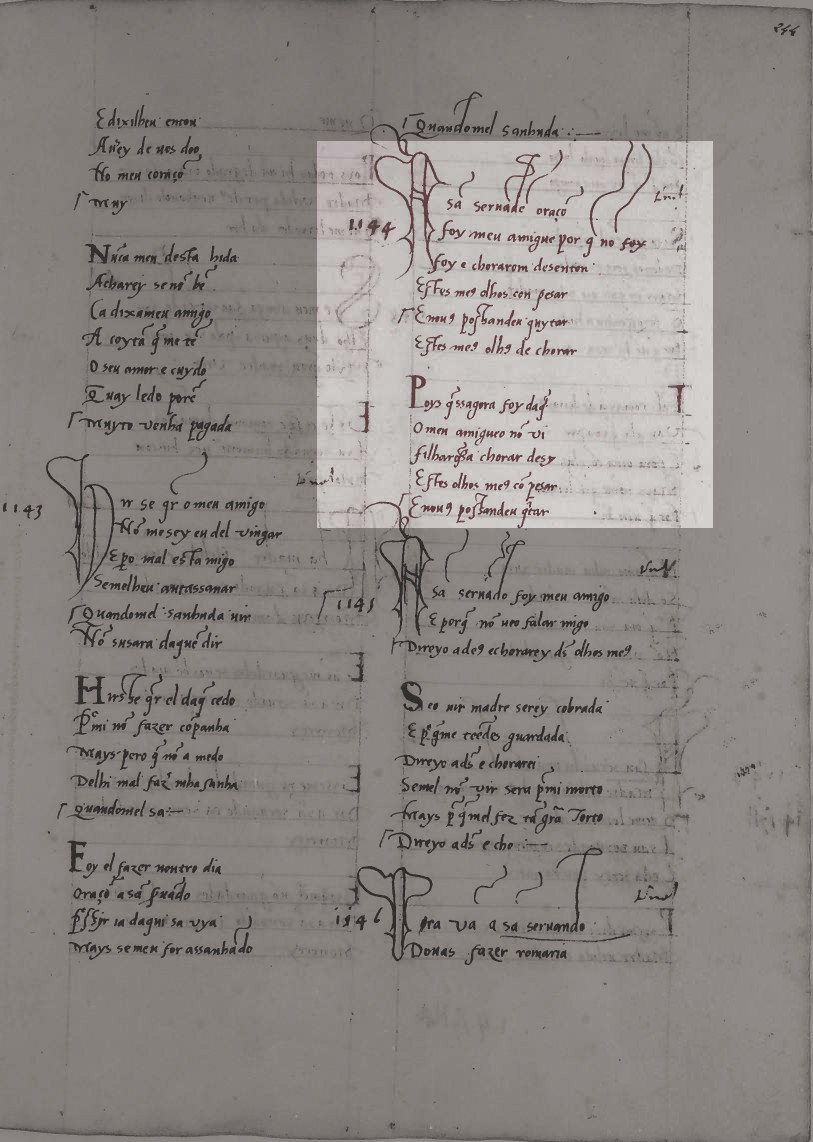 244
Edixilheu entou
Auey de uos doo
No meu coraço
Muy
Nũca meu desta hida
Acharey se nõ bẽ
Ca dixameu amigo
A coytã q̃ me tẽ
O seu amor e cuydo
Quay ledo porẽ
Muyto venha pagada
1143
Ir se q̃r o meu amigo
Nõ me sey eu del vingar
E po mal esta migo
Semelheu antassanar
Quandomel sanhuda uir
Nõ susara daquẽ dir
Hirsse q̃r el daq̃ cedo
P̃ mi nõ fazer cõpanha
Mays pero q̃ nõ a medo
Delhi mal faz̃ mha sanha
Quandomel sa :—
Foy el fazer noutro dia
Oraçõ a sã s̃uãdo
ia daqui sa vya
Mays semeu for assanhado
Quandomel sanhuda :—
1144
A sã seruãde oraçõ
foy meu amigue por q̃ no foy
foy e chorarom desenton
Estes meꝯ olhos con pesar
E nouꝯ possandeu quytar
Estes meꝯ olhꝯ de chorar
Poys q̃ssagora foy daq̃
O meu amigueo nõ vi
filharõssa chorar desy
Estes olhos meꝯ cõ pesar
E nouꝯ possandeu q̃tar
1145
A sã seruãdo foy meu amigo
E porq̃ nõ ueo falar migo
Direyo a deꝯ e chorarey dꝯ olhos meꝯ
Seo uir madre serey cobrada
E porq̃me teedes guardada
Direyo adꝯ e chorarei
Semel nõ vir sera p̃mi morto
Mays p̃ q̃mel fez tã grã Torto
Direyo adꝯ e cho :—
1146
Ora va a sã seruando
Donas fazer romaria